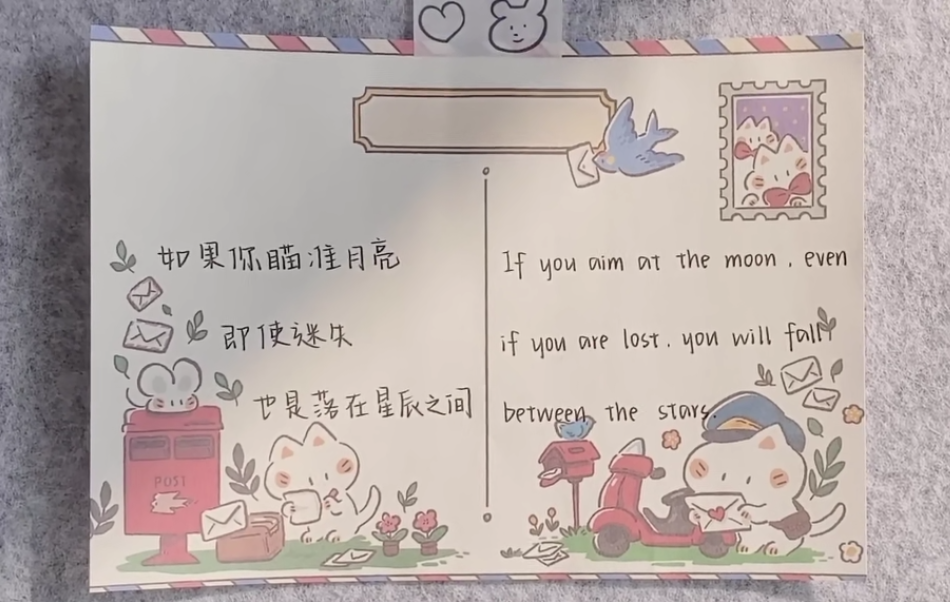 如果你瞄准月亮
即使谜失
也是落在星辰之间
If you aim at the moon , even
if you are lost . you will fall
between the stars
POST